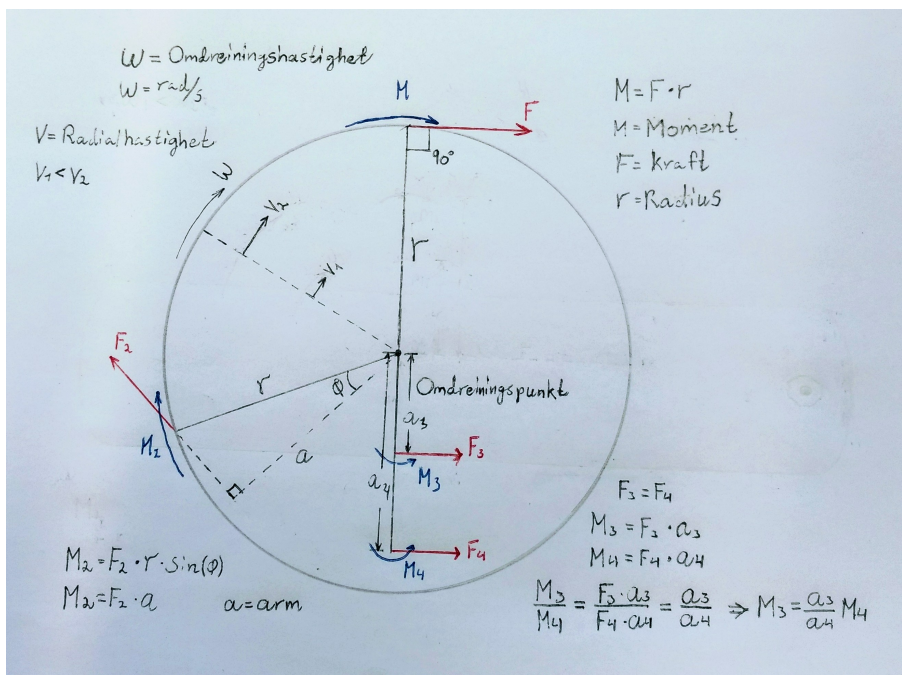 ω = Omdreiningshastighet
ω = rad/s
V = Radialhastighet
V₁ < V₂
M = F · r
M = Moment
F = kraft
r = Radius
M
F
90°
ω
V₂
V₁
r
F₂
r
φ
Omdreiningspunkt
a₃
M₂
a
F₃
M₃
a₄
F₄
M₄
M₂ = F₂ · r · sin(φ)
M₂ = F₂ · a
a = arm
F₃ = F₄
M₃ = F₃ · a₃
M₄ = F₄ · a₄
M₃/M₄ = F₃·a₃/F₄·a₄ = a₃/a₄ ⇒ M₃ = a₃/a₄ M₄